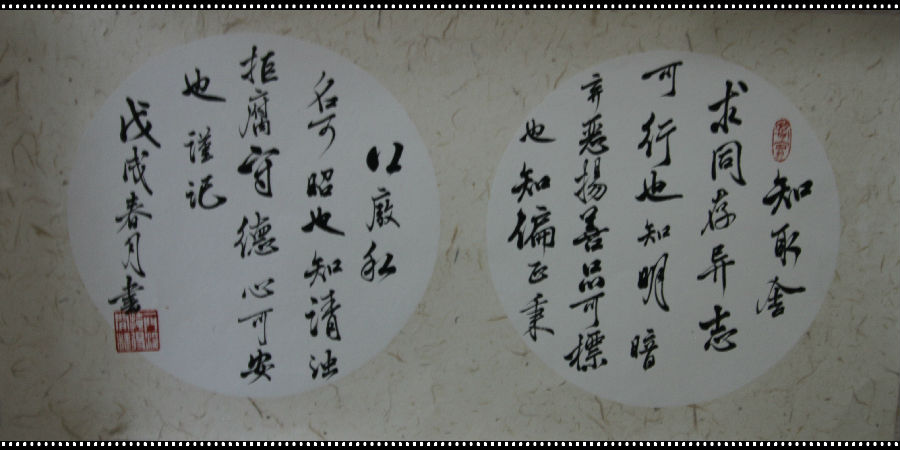 知取舍
求同存异志
可行也知明暗
弃恶扬善品可标
也知偏正秉
公废私
名可昭也知请浊
拒腐守德心可安
也谨记
戊戌春月书